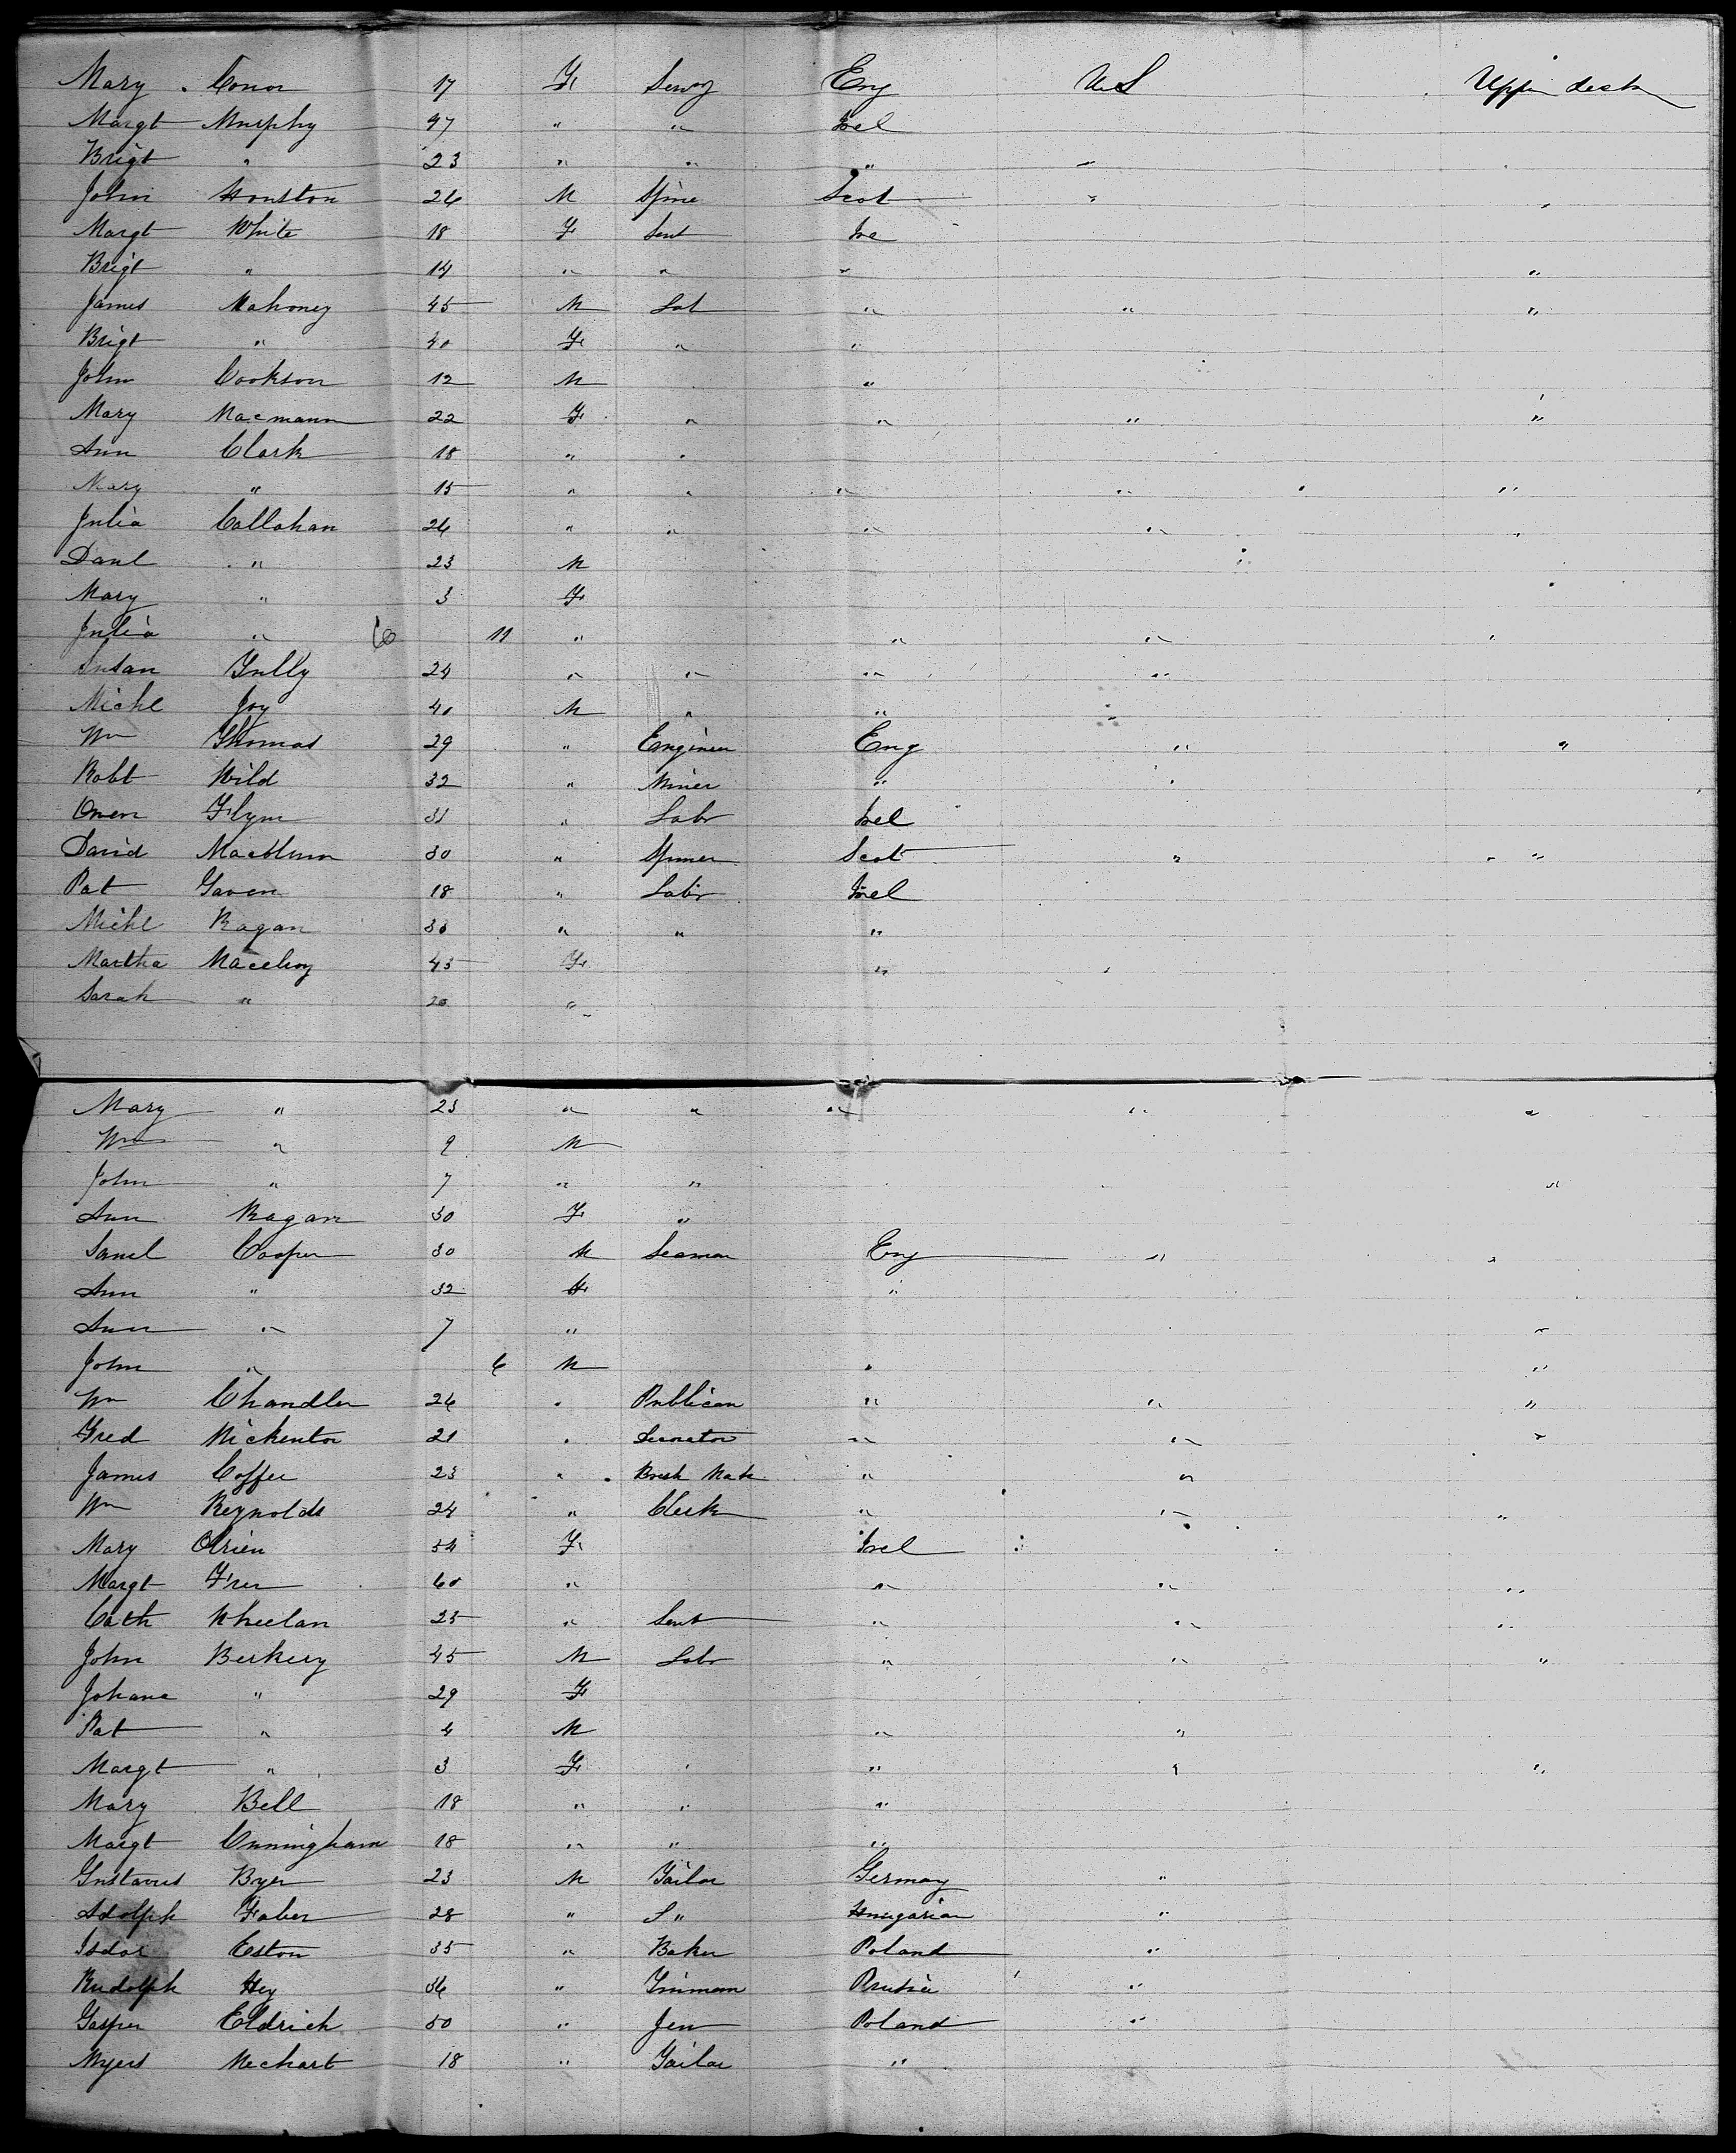 Mary Conor 17 F Serv Eng US Upper deck
Margt Murphy 47 " " Irel
Brigt " 23 " " " "
John Houston 26 M Spine Scot " "
Margt White 18 F Servt Ire
Brigt " 14 " " " "
James Mahoney 45 M Lab " " "
Brigt " 40 F " "
John Cookson 12 M "
Mary Macmann 22 F " " " "
Ann Clark 18 " "
Mary " 15 " " " " "
Julia Callahan 26 " " " " "
Danl " 23 M
Mary " 3 F
Julia " 11 " " " "
Susan Tully 24 " " " "
Michl Joy 40 M " "
Wm Thomas 29 " Engineer Eng " "
Robt Wild 32 " Miner " "
Owen Flynn 31 " Labr Irel
David 30 " Spinner Scot " "
Pat Gaven 18 " Labr Irel
Michl Ragan 30 " " "
Martha Macelroy 45 F "
Sarah " 20 "
Mary " 23 " " " " "
Wm " 9 M
John " 7 " " "
Ann Ragan 30 F "
Saml Cooper 30 M Seaman Eng " "
Ann " 32 F "
Ann " 7 " "
John " 6 M " "
Wm Chandler 26 " Publican " " "
Fred 21 " " " "
James Coffee 23 " Brick " "
Wm Reynolds 24 " Clerk " " "
Mary OBrien 54 F Irel
Margt 60 " " " "
Cath Wheelan 25 " Servt " " "
John Berkery 45 M Labr " " "
Johana " 29 F
Pat " 4 M " "
Margt " 3 F " " "
Mary Bell 18 " " "
Margt Cunningham 18 " " "
Gustavus Byer 23 M Tailor Germany "
Adolph Faber 28 " " Hungarian "
Isdor Eston 35 " Baker Poland "
Rudolph Hey 36 " Prusia "
Gasper Eldrich 50 " Jew Poland "
Myers Mechart 18 " Tailor "